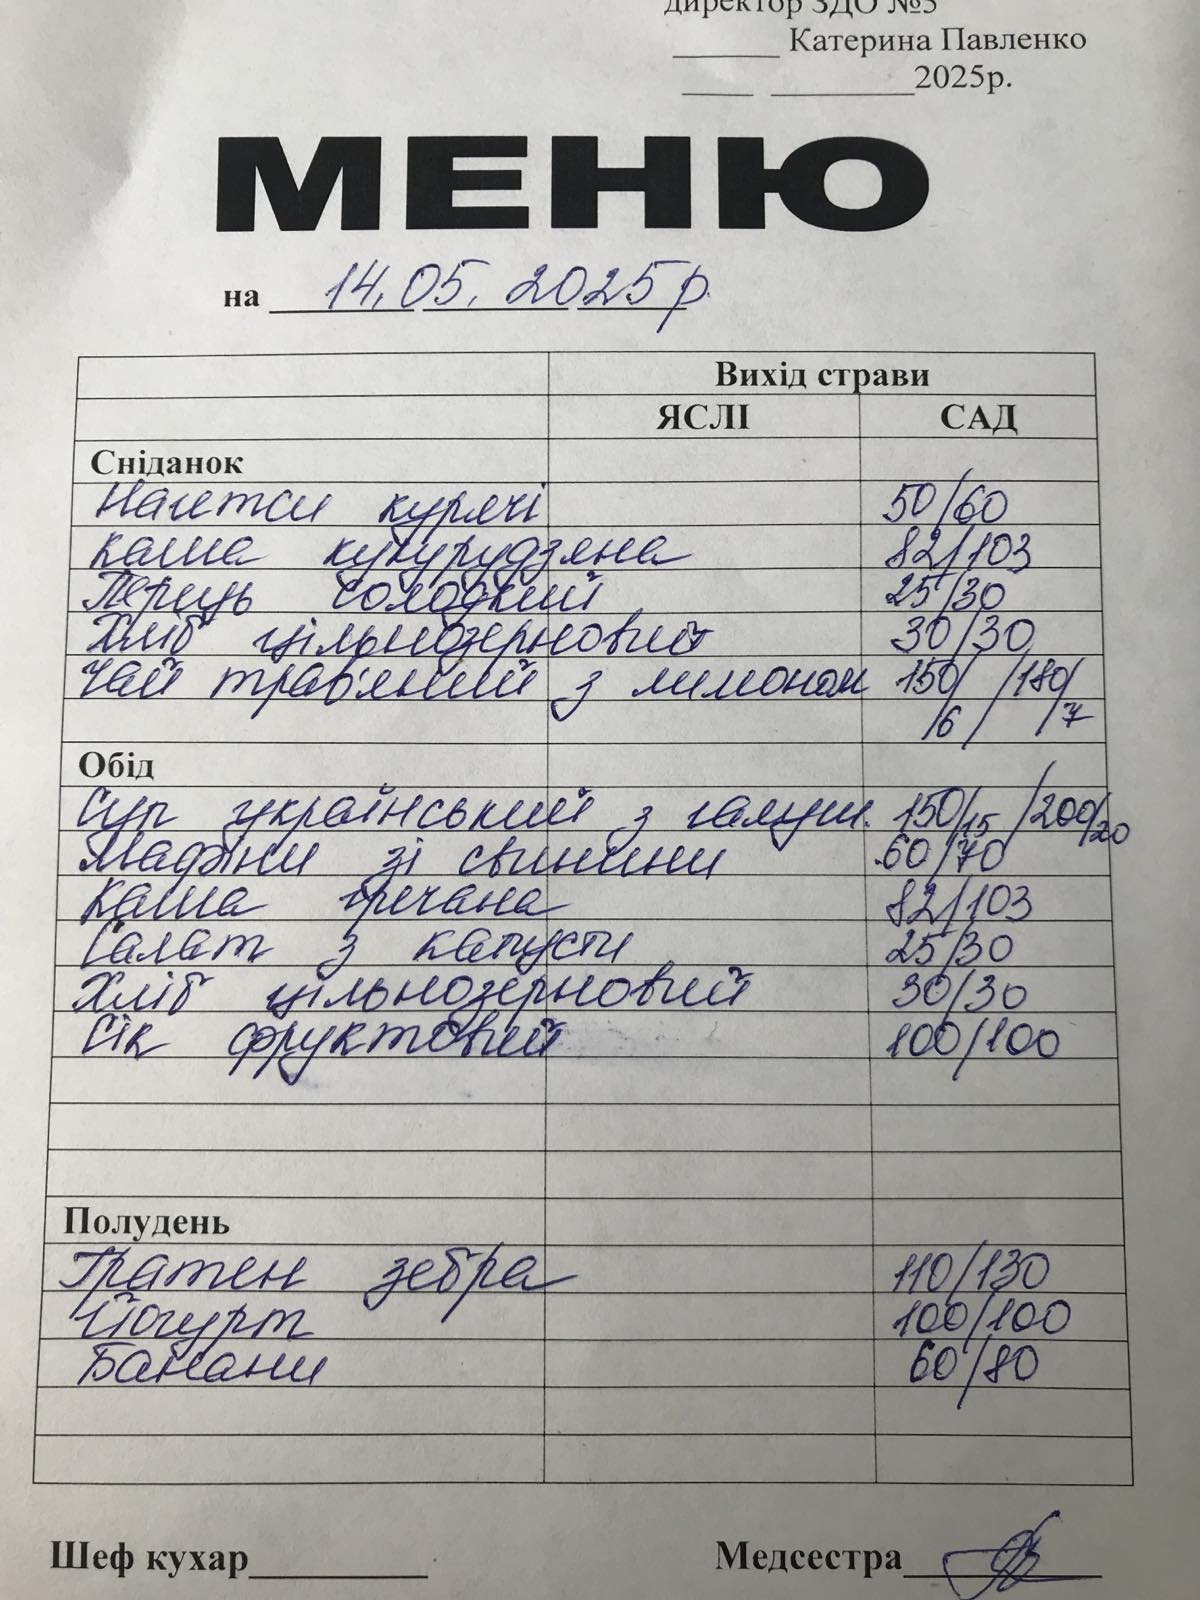 директор ЗДО №5
______ Катерина Павленко
____ ________2025р.
МЕНЮ
на 14.05.2025р.
Вихід страви
ЯСЛІ САД
Сніданок
Нагетси курячі 50/60
Каша кукурудзяна 82/103
Перець солодкий 25/30
Хліб цільнозерновий 30/30
Чай трав'яний з лимоном 150/ /180/
/6 / /7
Обід
Суп український з галуш. 150/15 /200/20
Мафіни зі свинини 60/70
Каша гречана 82/103
Салат з капусти 25/30
Хліб цільнозерновий 30/30
Сік фруктовий 100/100
Полудень
Гратен зебра 110/130
Йогурт 100/100
Банани 60/80
Шеф кухар__________ Медсестра